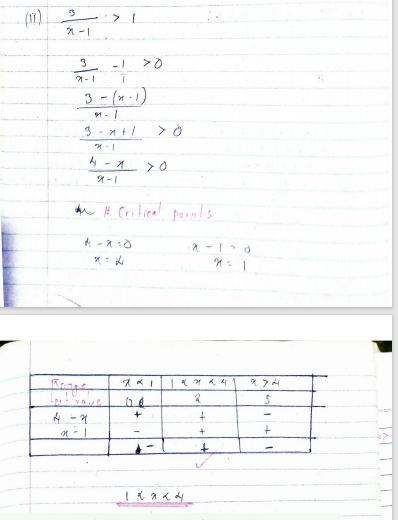 (11) 3/(x-1) > 1
3/(x-1) - 1/1 > 0
3 - (x-1) / x-1
3 - x + 1 / x-1 > 0
4 - x / x-1 > 0
# Critical points
4 - x = 0 x - 1 = 0
x = 4 x = 1
Range x < 1 1 < x < 4 x > 4
test value 0 2 5
4 - x + + -
x - 1 - + +
- + -
✓
1 < x < 4